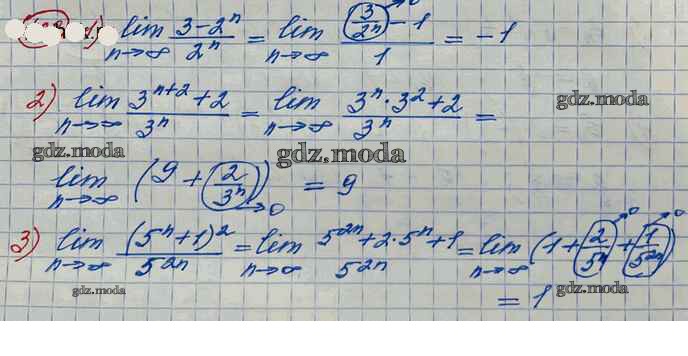 1) lim n→∞ (3-2ⁿ)/2ⁿ = lim n→∞ (3/2ⁿ - 1)/1 = -1
2) lim n→∞ (3ⁿ⁺² + 2)/3ⁿ = lim n→∞ (3ⁿ · 3² + 2)/3ⁿ =
gdz.moda
gdz.moda gdz.moda
lim n→∞ (9 + 2/3ⁿ) = 9
→0
3) lim n→∞ (5ⁿ+1)²/5²ⁿ = lim n→∞ (5²ⁿ + 2·5ⁿ + 1)/5²ⁿ = lim n→∞ (1 + 2/5ⁿ + 1/5²ⁿ)
→0 →0
gdz.moda = 1 gdz.moda